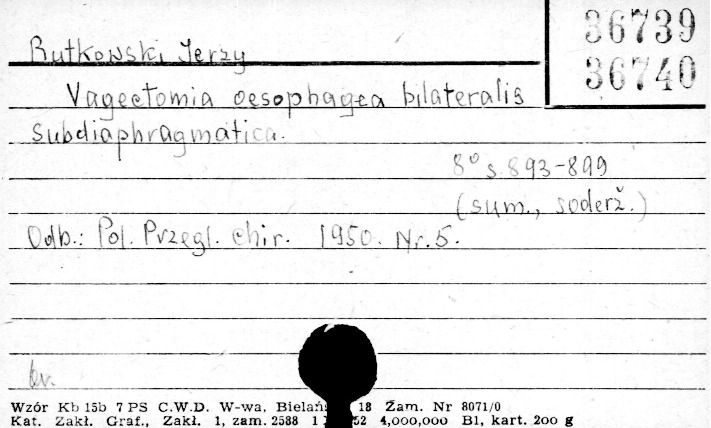 36739
36740
Rutkowski Jerzy
Vagectomia oesophagea bilateralis
subdiaphragmatica.
8° s. 893-899
(sum., soderž.)
Odb.: Pol. Przegl. chir. 1950. Nr. 5.
Wzór Kb 15b 7 PS C.W.D. W-wa, Bielańs 18 Zam. Nr 8071/0
Kat. Zakł. Graf., Zakł. 1, zam. 2588 1 52 4,000,000 B1, kart. 200 g